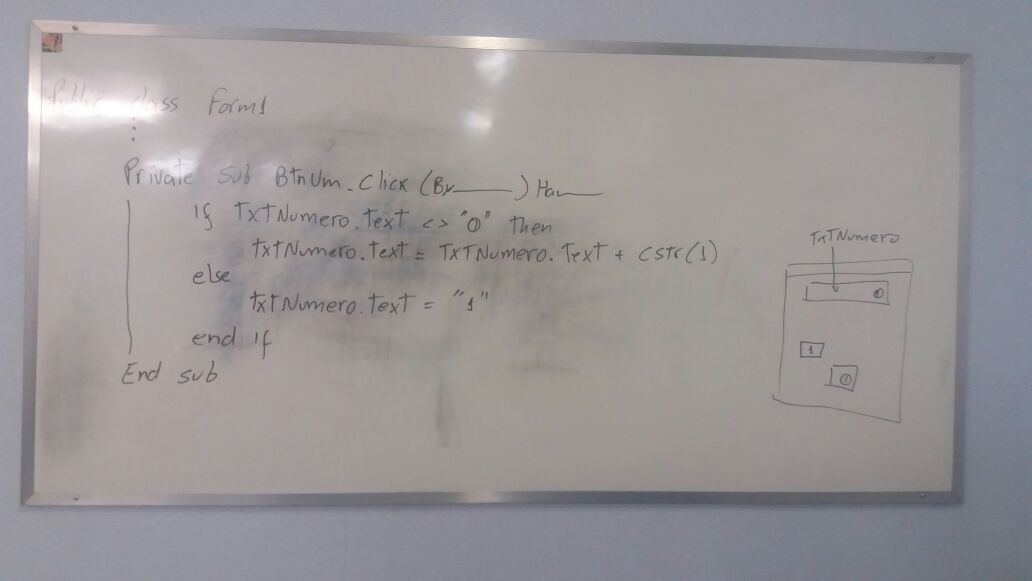 Public class Form1
Private Sub BtnUm_Click (By____) Ha____
If TxTNumero.Text <> "0" then
TxTNumero.Text = TxTNumero.Text + CSTR(1)
else
TxTNumero.Text = "1"
end if
End sub
TxTNumero
0
1
0